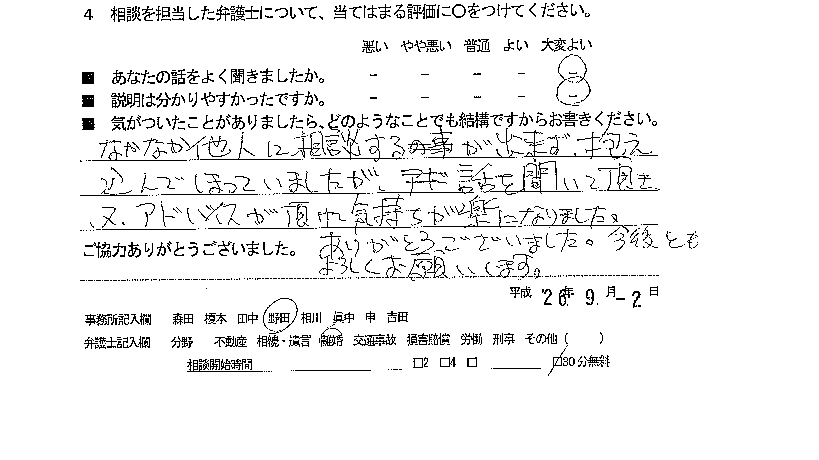 4 相談を担当した弁護士について、当てはまる評価に〇をつけてください。
悪い やや悪い 普通 よい 大変よい
■ あなたの話をよく聞きましたか。 － － － － －
■ 説明は分かりやすかったですか。 － － － － －
■ 気がついたことがありましたら、どのようなことでも結構ですからお書きください。
なかなか他人に相談する事が出来ず、抱え
込んでしまっていましたが、話を聞いて頂き
、又、アドバイスが頂け気持ちが楽になりました。
ご協力ありがとうございました。
ありがとうございました。今後とも
よろしくお願いします。
平成 26年 9月 -2日
事務所記入欄 森田 榎本 田中 野田 相川 眞中 申 吉田
弁護士記入欄 分野 不動産 相続・遺言 離婚 交通事故 損害賠償 労働 刑事 その他（ ）
相談開始時間 □2 □4 □ □30分無料